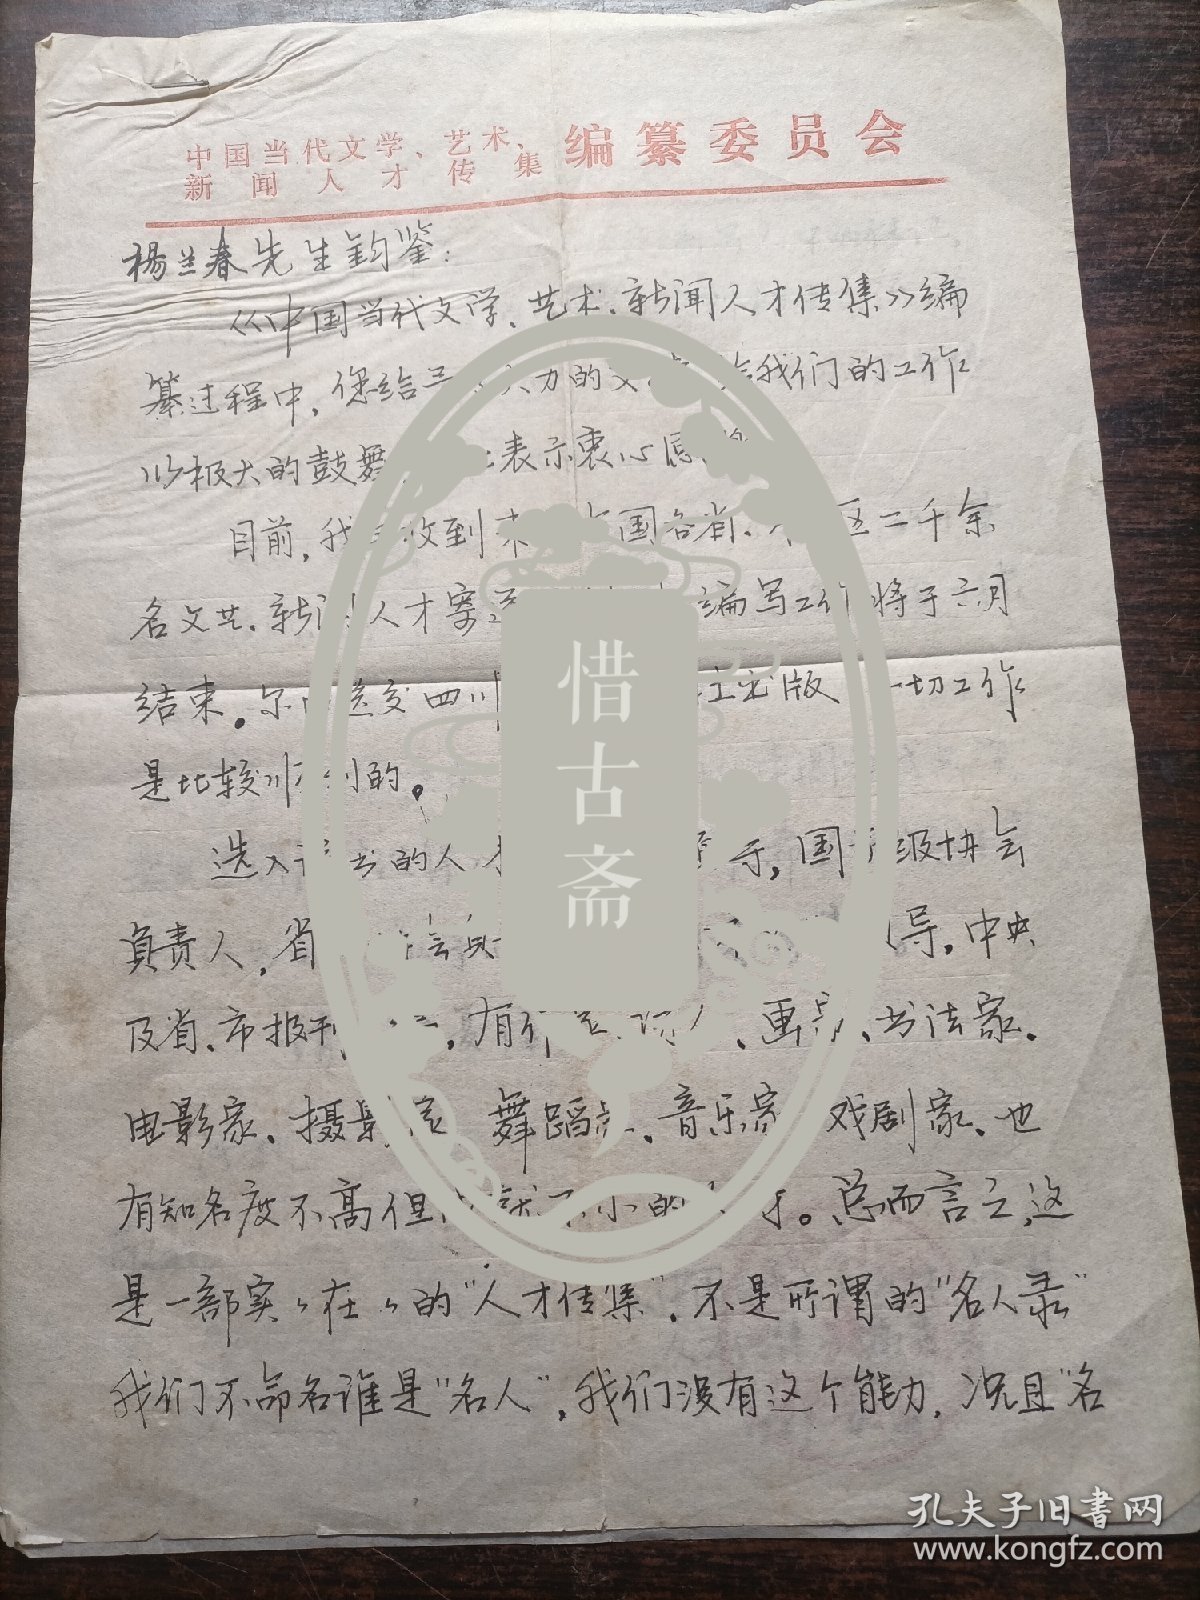 中国当代文学、艺术、
新闻人才传集
编纂委员会
杨兰春先生钧鉴：
《中国当代文学、艺术、新闻人才传集》编
纂过程中，您给予大力的支给我们的工作
以极大的鼓舞，表示衷心感
目前，我收到来国各省、区二千余
名文艺、新闻人才编写工作将于六月
结束。尔后送交四川出版一切工作
是比较顺利的。
选入书的人才，国家级协会
负责人，省导，中央
及省、市报刊，有作家、画家、书法家、
电影家、摄影家、舞蹈家、音乐家、戏剧家、也
有知名度不高但成就不小的。总而言之，这
是一部实々在々的“人才传集”，不是所谓的“名人录”
我们不命名谁是“名人”，我们没有这个能力，况且“名
惜古斋
孔夫子旧书网
www.kongfz.com